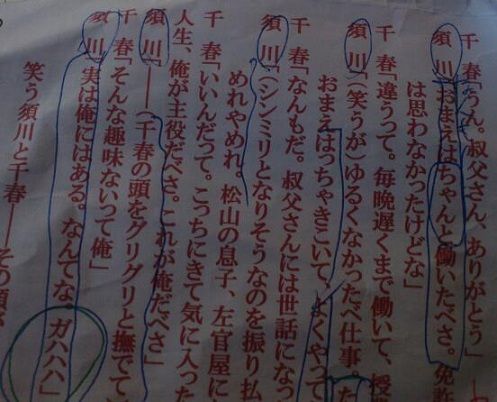 千　春「うん。叔父さん、ありがとう」
須　川「おまえはちゃんと働いたべさ。免許
は思わなかったけどな」
千　春「違うって。毎晩遅くまで働いて、授
須　川「（笑うが）ゆるくなかったべ仕事。た
おまえはっちゃきこいて、よくやって
千　春「なんもだ。叔父さんには世話になっ
須　川「（シンミリとなりそうなのを振り払
めれやめれ。松山の息子、左官屋に
千　春「いいんだって。こっちにきて気に入った
人生、俺が主役だべさ。これが俺だべさ」
須　川「――（千春の頭をグリグリと撫でて
千　春「そんな趣味ないって俺」
須　川「実は俺にはある。なんてな、ガハハハ」
笑う須川と千春――その頃